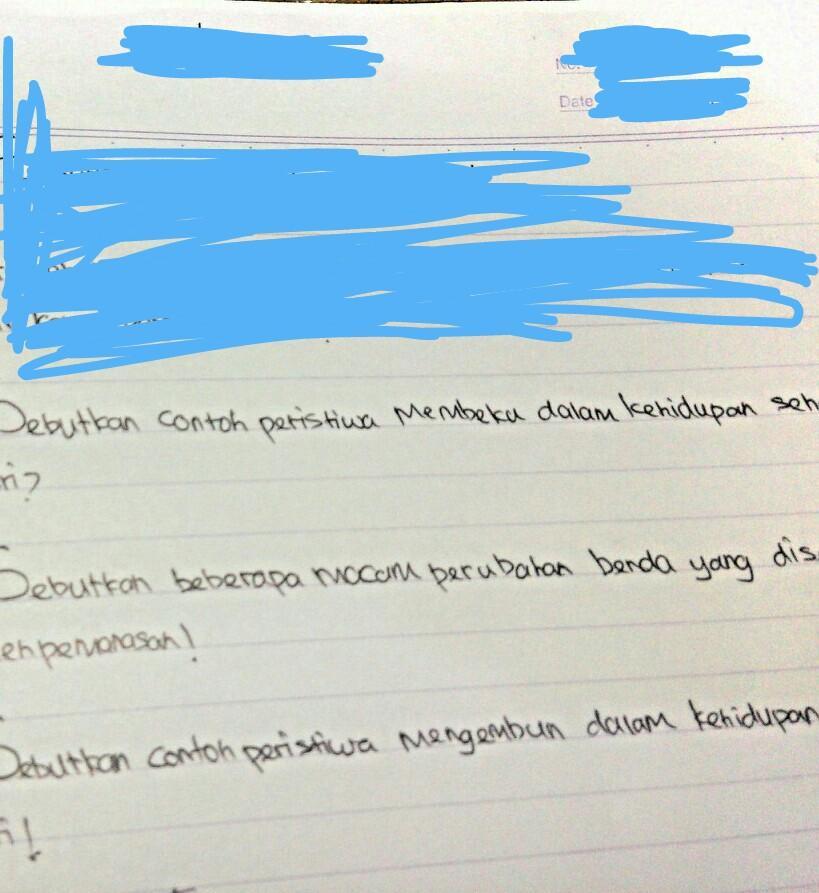 No.
Date
Debutkan contoh peristiwa Membeku dalam kehidupan seh
ri?
Debutkan beberapa macam perubahan benda yang dis
eh pemanasan!
Debutkan contoh peristiwa mengembun dalam kehidupan
i!